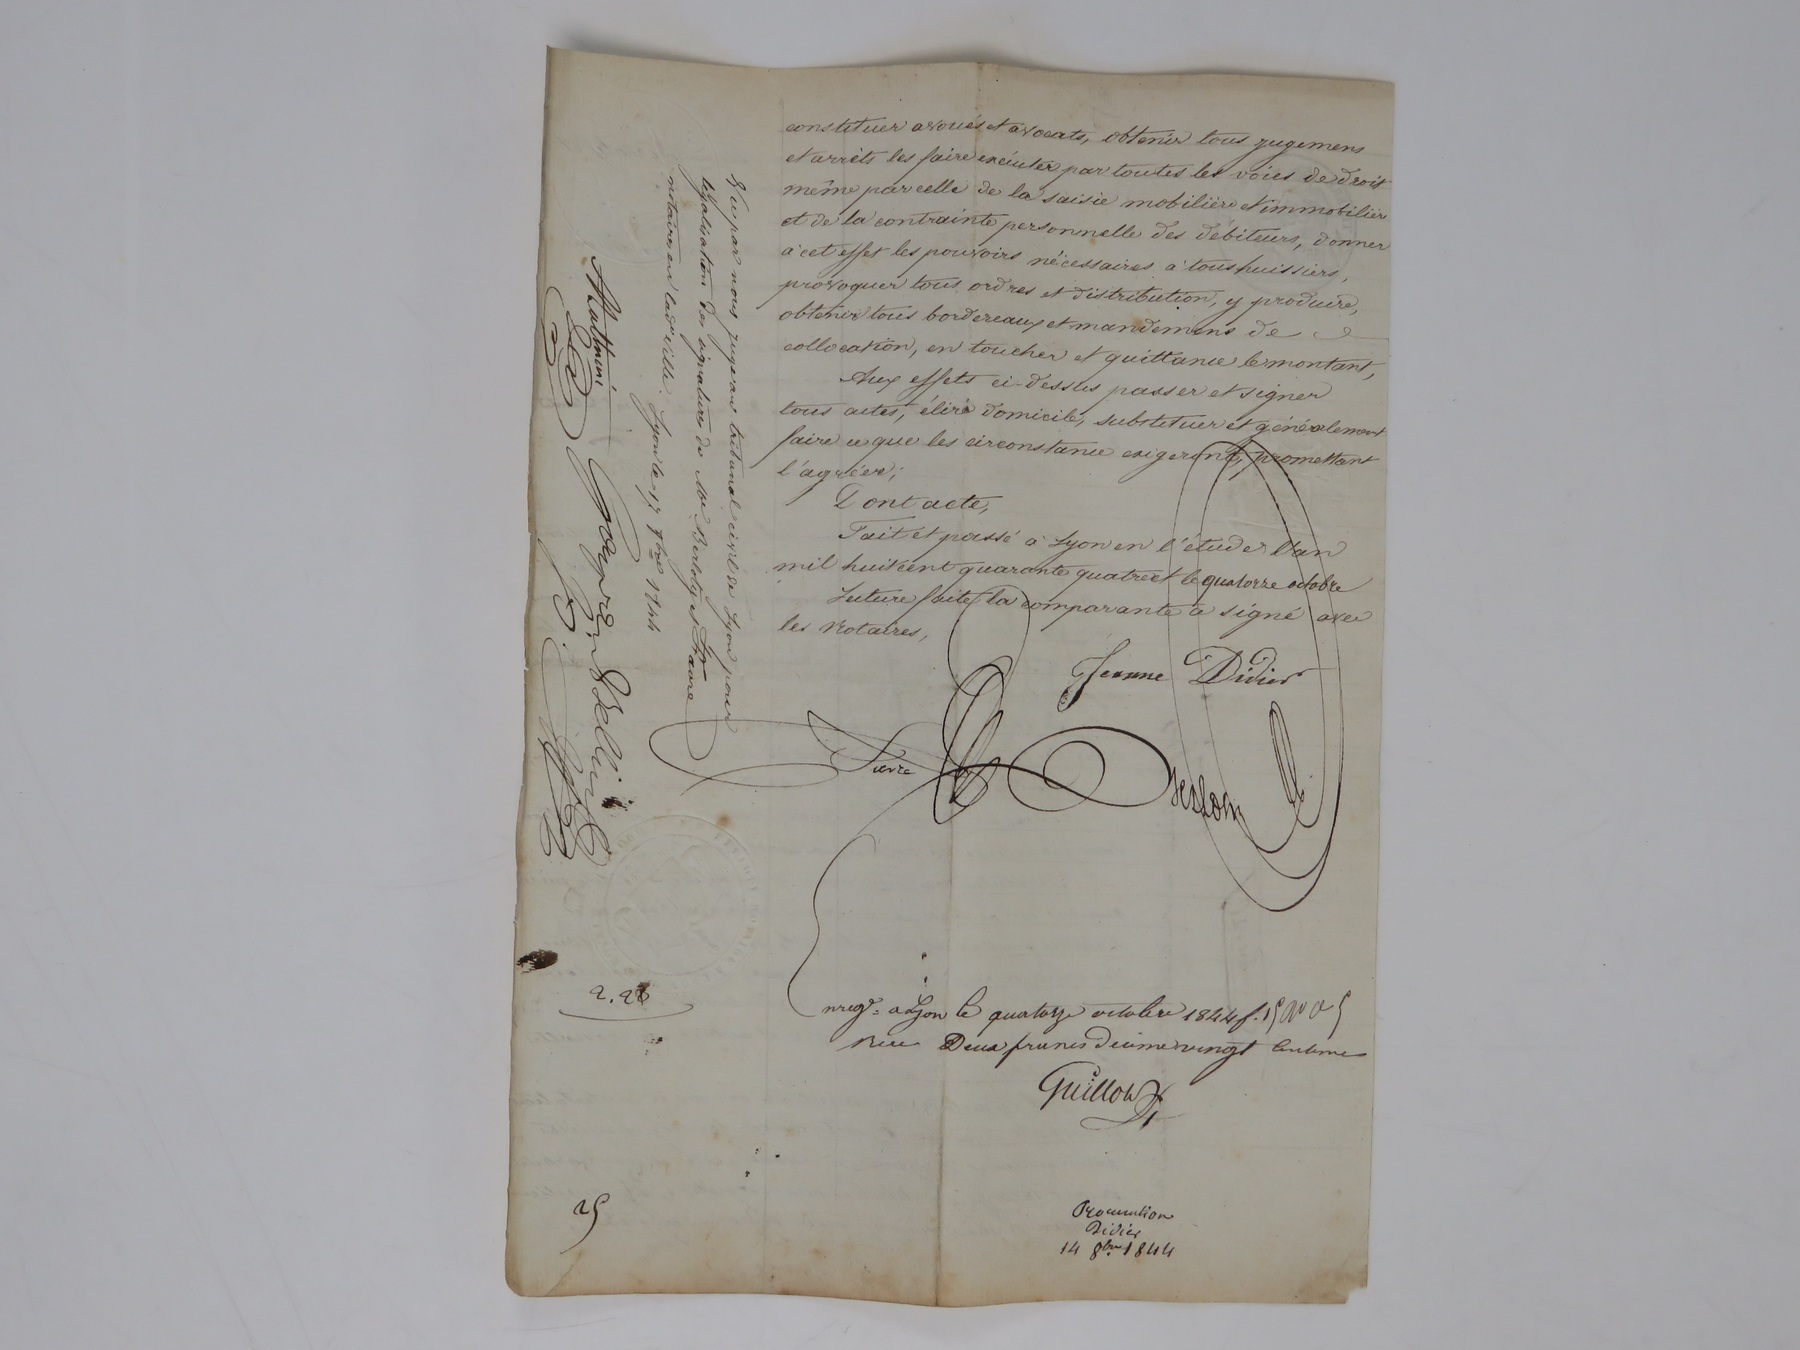 constituer avoués et avocats, obtenir tous jugemens
et arrêts les faire exécuter par toutes les voies de droit
même par celle de la saisie mobilière et immobilière
et de la contrainte personnelle des débiteurs, donner
à cet effet les pouvoirs nécessaires à tous huissiers,
provoquer tous ordres et distribution, y produire,
obtenir tous bordereaux et mandemens de
collocation, en toucher et quittance le montant,
Aux effets ci-dessus passer et signer
tous actes, élire domicile, substituer et généralement
faire ce que les circonstance exigeront, promettant
l'agréer;
Dont acte,
Fait et passé à Lyon en l'étude l'an
mil huit cent quarante quatre et le quatorze octobre
Lecture faite la comparante a signé avec
les Notaires,
Jeanne Didier
Favre
Vu par nous juge au tribunal civil de Lyon pour
légalisation des signatures de Me Berloty et Favre
notaires en lad. ville. Lyon le 17 8bre 1844
2.20
nregé. à Lyon le quatorze octobre 1844 f. 15
Reçu Deux francs décime vingt centimes
Guillot
25
Procuration
Didier
14 8bre 1844